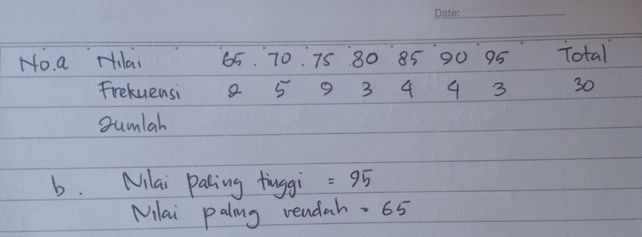 Date:
No.a Nilai 65 70 75 80 85 90 95 Total
Frekuensi 2 5 9 3 4 4 3 30
Jumlah
b. Nilai paling tinggi = 95
Nilai paling rendah = 65